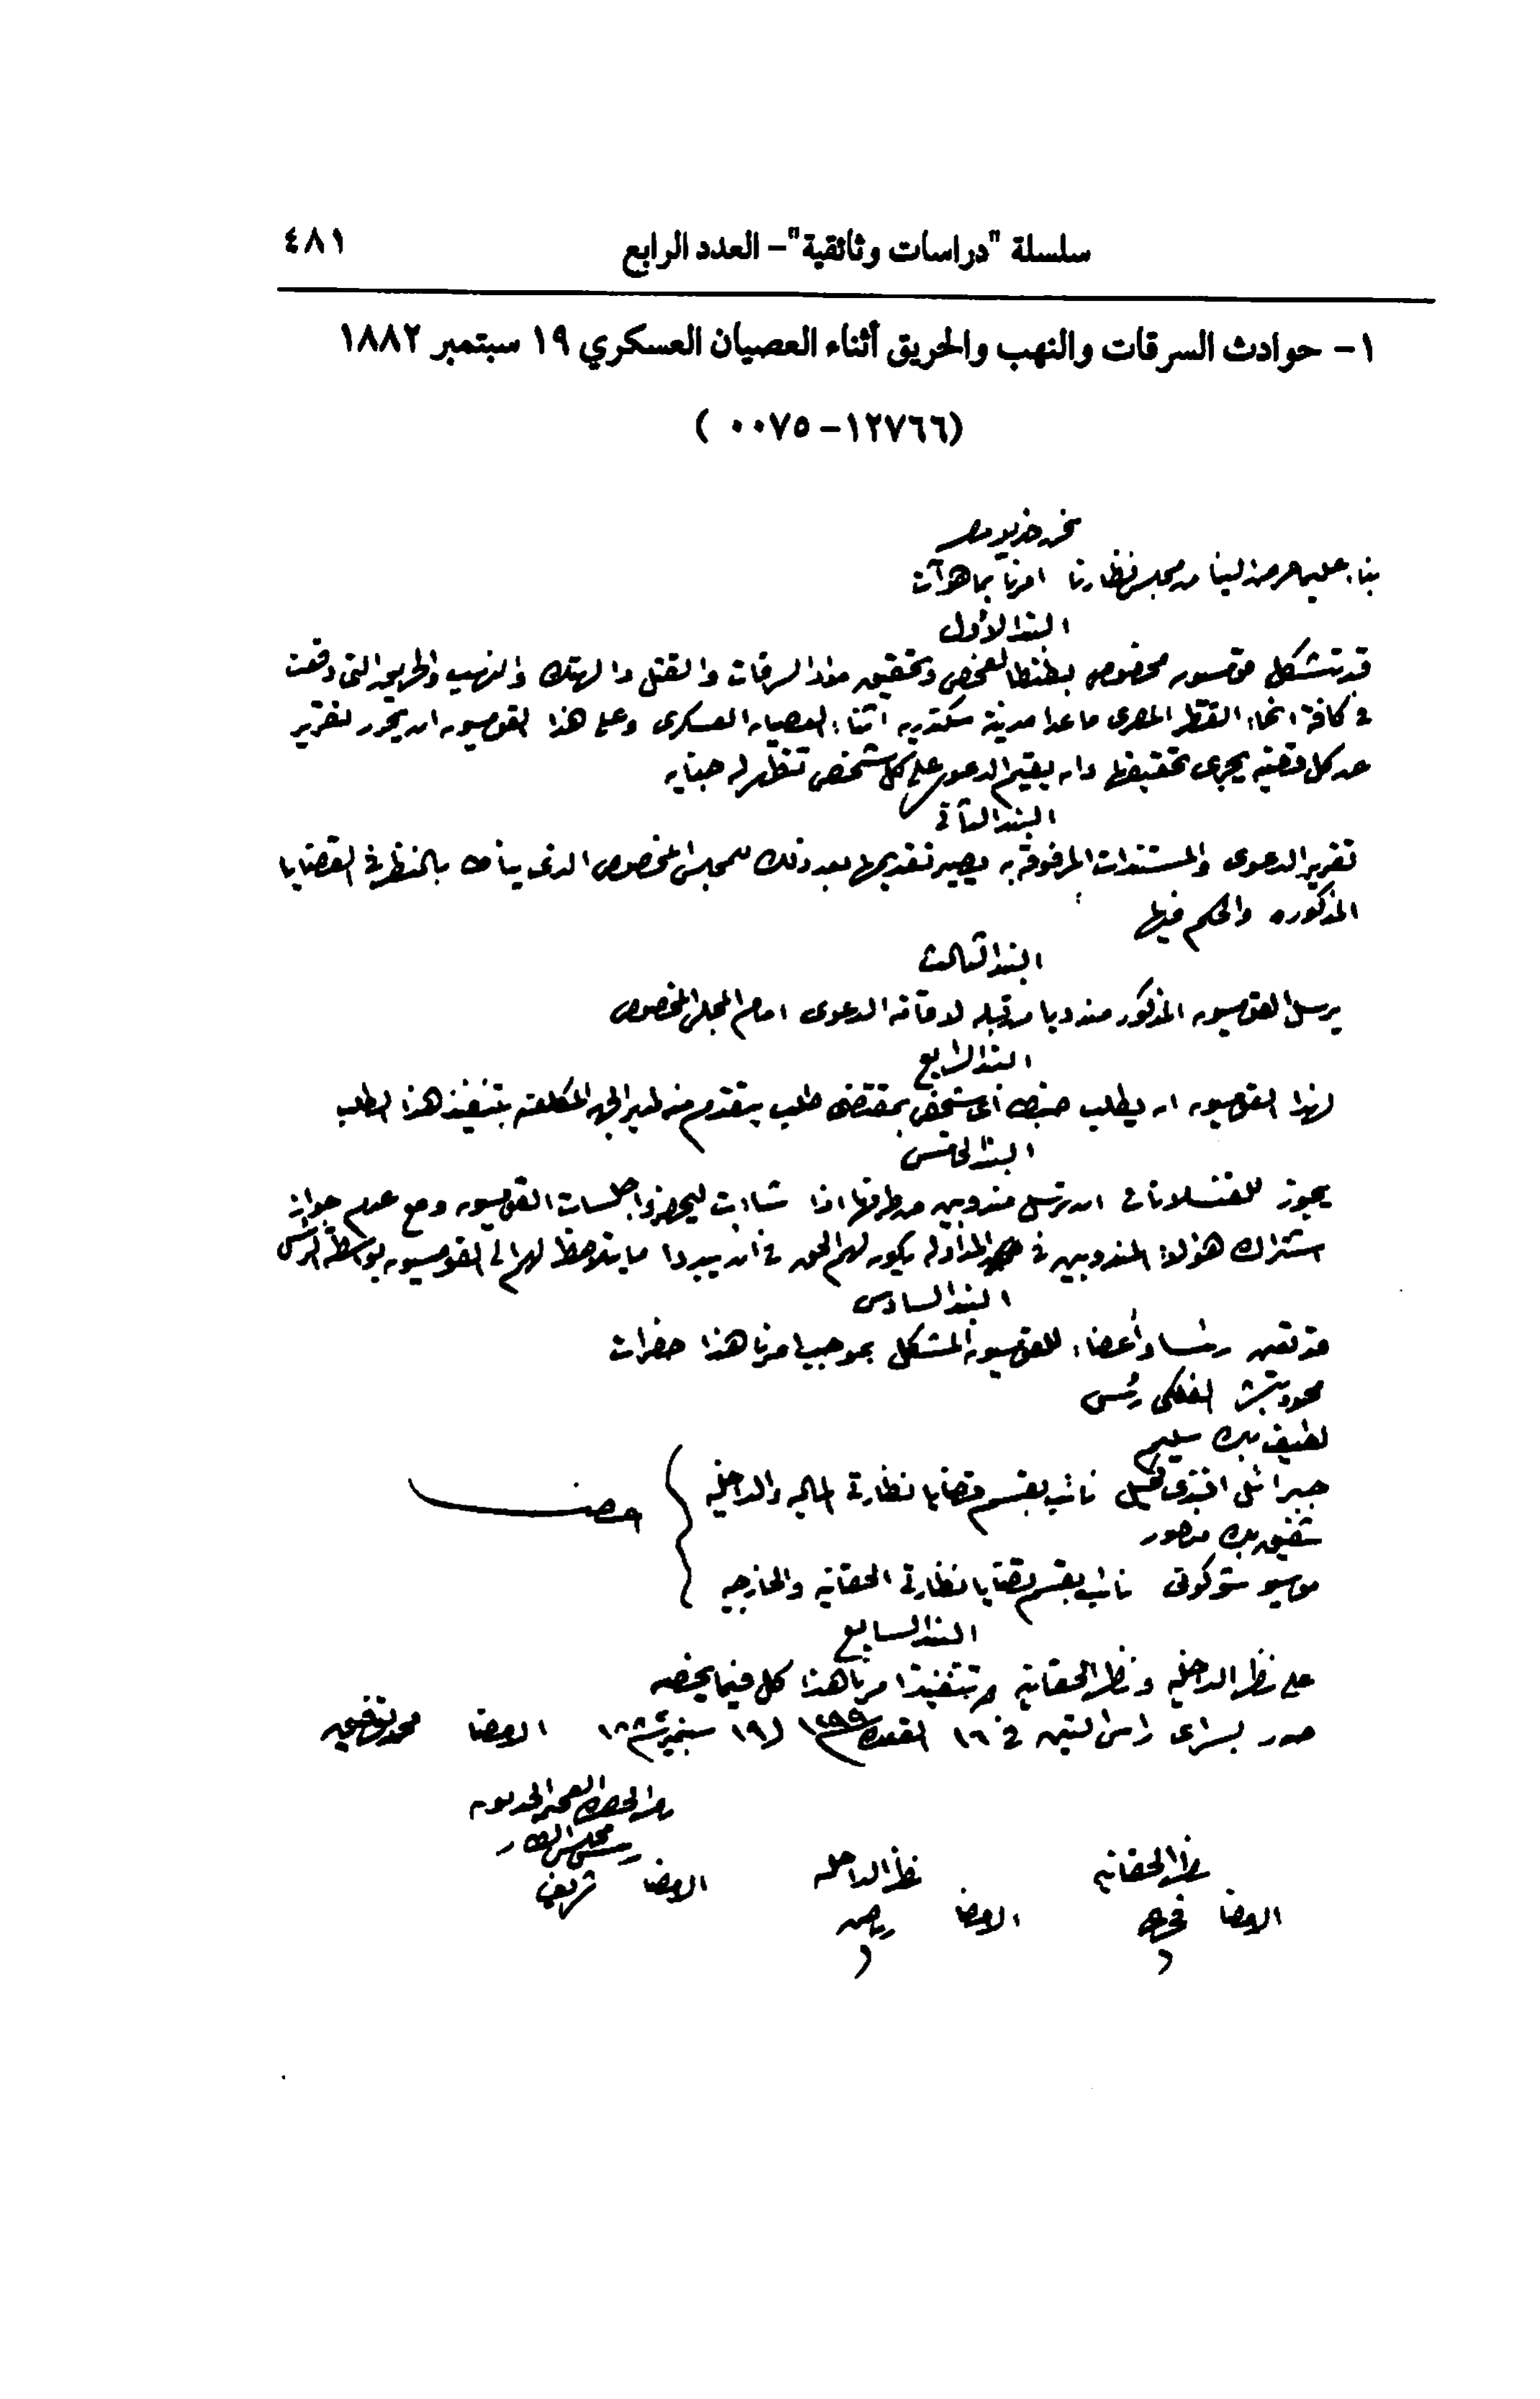 سلسلة "دراسات وثائقية"- العدد الرابع ٤٨١
١- حوادث السرقات والنهب والحريق أثناء العصيان العسكري ١٩ سبتمبر ١٨٨٢
(١٢٧٦٦-٠٠٧٥ )
نحن خديو مصر
بناء على ما عرض الينا من مجلس نظارنا امرنا بما هو آت
البند الأول
قد تشكل قومسيون مخصوص بطنطا لفحص وتحقيق مواد السرقات والقتل والهتك والنهب والحريق التي وقعت
في كافة انحاء القطر المصرى ما عدا مدينة سكندريه أثناء العصيان العسكرى وعلى هذا القومسيون ان يحرر تقرير
عن كل قضيه يجرى تحقيقها وان يقيم الدعوى على كل شخص تظهر له جنايه
البند الثانى
تقرير الدعوى والمستندات المرفوقه به يصير تقديمها بعد ذلك للمجلس المخصوص الذى يناط بالنظر في القضايا
المذكوره والحكم فيها
البند الثالث
يرسل القومسيون المذكور مندوبا من قبله لاقامة الدعوى امام المجلس المخصوص
البند الرابع
لهذا القومسيون ان يطلب ضبط أى شخص بمقتضى طلب يتقدم منه الجهه المكلفه بتنفيذ هذا الطلب
البند الخامس
يجوز للقنسلاتات ان ترسل مندوبين من طرفها اذا شاءت ليحضروا جلسات القومسيون ومع عدم جواز
اشتراك هؤلاء المندوبين في المداوله يكون لهم الحق في أن يبدوا ما يتلاحظ لهم الى القومسيون بواسطة الرئيس
البند السادس
قد تعين رئيسا وأعضاء للقومسيون المشكل بموجب امرنا هذا حضرات
محمود باشا الفلكى رئيس
لطيف بك سليم
جبرائيل افندى كحيل نائب بقسم قضايا نظارتى الماليه والداخليه } اعضا
شفيق بك منصور
موسيو نائب بقسم قضايا نظارتى الحقانيه والخارجيه
البند السابع
على ناظر الداخليه وناظر الحقانيه تنفيذ امرنا هذا كل فيما يخصه
صدر بسراى راس التين في ١٦ القعده ١٢٩٩ (١٩ سبتمبر ١٨٨٢ الامضا محمد توفيق
بامر الحضرة الفخيمة الخديويه
رئيس مجلس النظار
ناظر الحقانيه ناظر الداخليه الامضا شريف
الامضا فخرى الامضا رياض